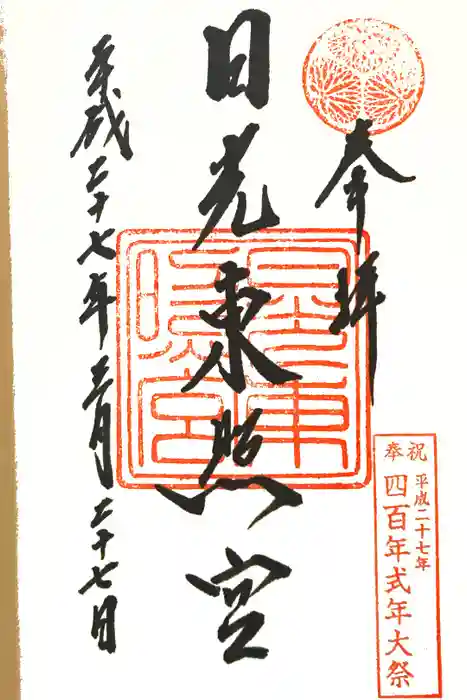 奉拝
日光東照宮
平成二十七年三月二十七日
奉祝
平成二十七年
四百年式年大祭